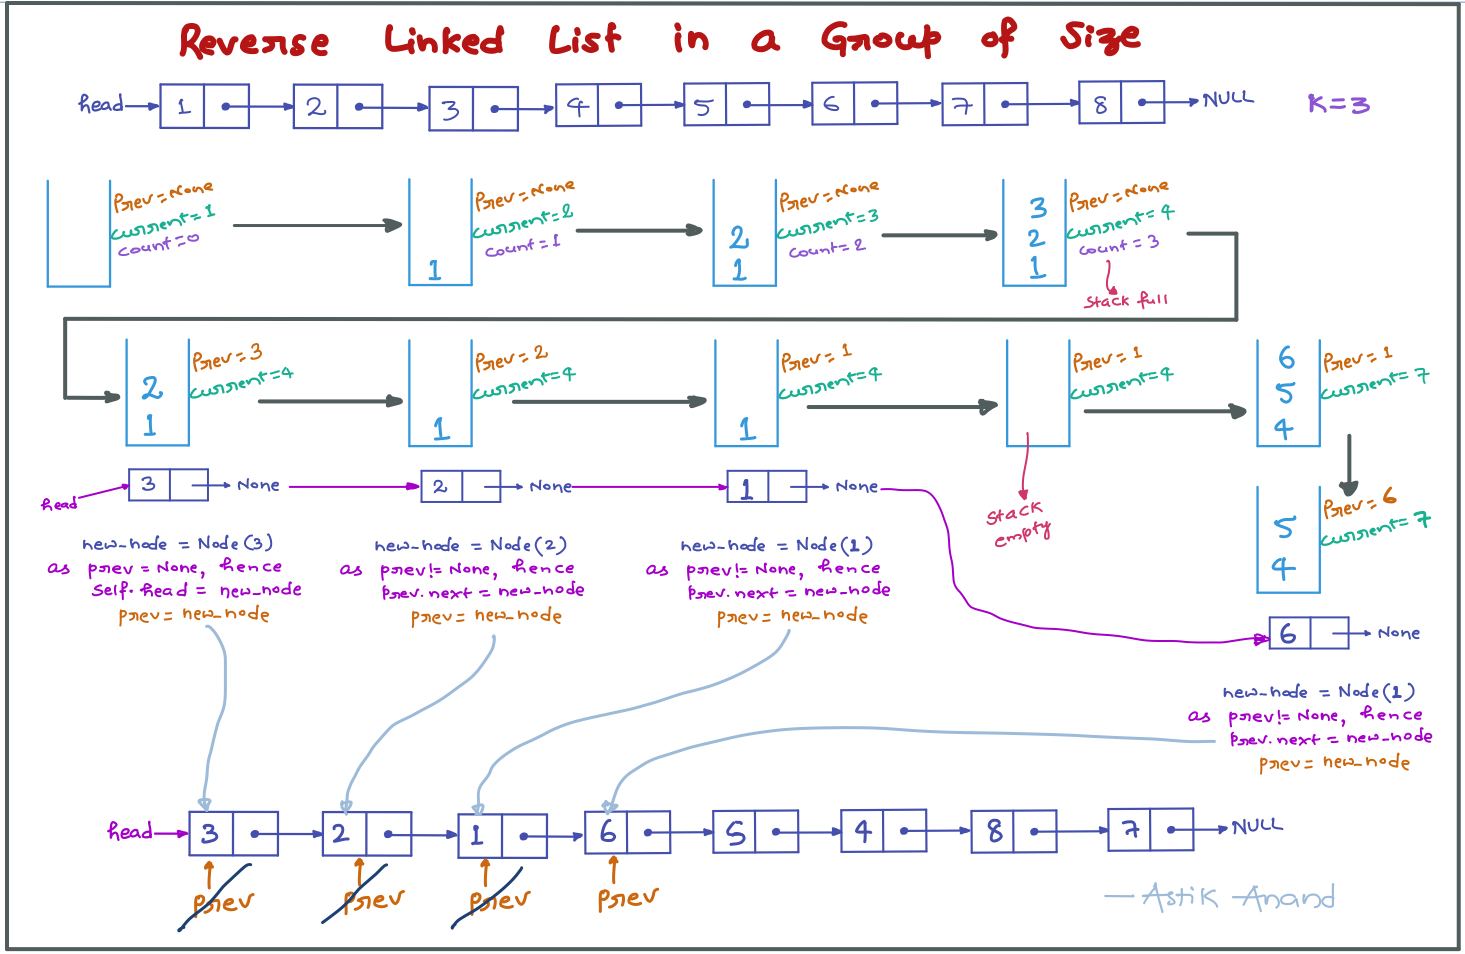 Reverse Linked List in a Group of Size
head 1 2 3 4 5 6 7 8 NULL K=3
Prev=None
current=1
count=0
1
Prev=None
current=2
count=1
2
1
Prev=None
current=3
count=2
3
2
1
Prev=None
current=4
count=3
Stack full
2
1
Prev=3
current=4
1
Prev=2
current=4
1
Prev=1
current=4
Prev=1
current=4
Stack
empty
6
5
4
Prev=1
current=7
5
4
Prev=6
current=7
head 3 None 2 None 1 None
new_node = Node(3)
as prev = None, hence
Self.head = new_node
prev = new_node
new_node = Node(2)
as prev!= None, hence
prev.next = new_node
prev = new_node
new_node = Node(1)
as prev!= None, hence
prev.next = new_node
prev = new_node
6 None
new_node = Node(1)
as prev!= None, hence
prev.next = new_node
prev = new_node
head 3 2 1 6 5 4 8 7 NULL
Prev Prev Prev Prev
— Astik Anand